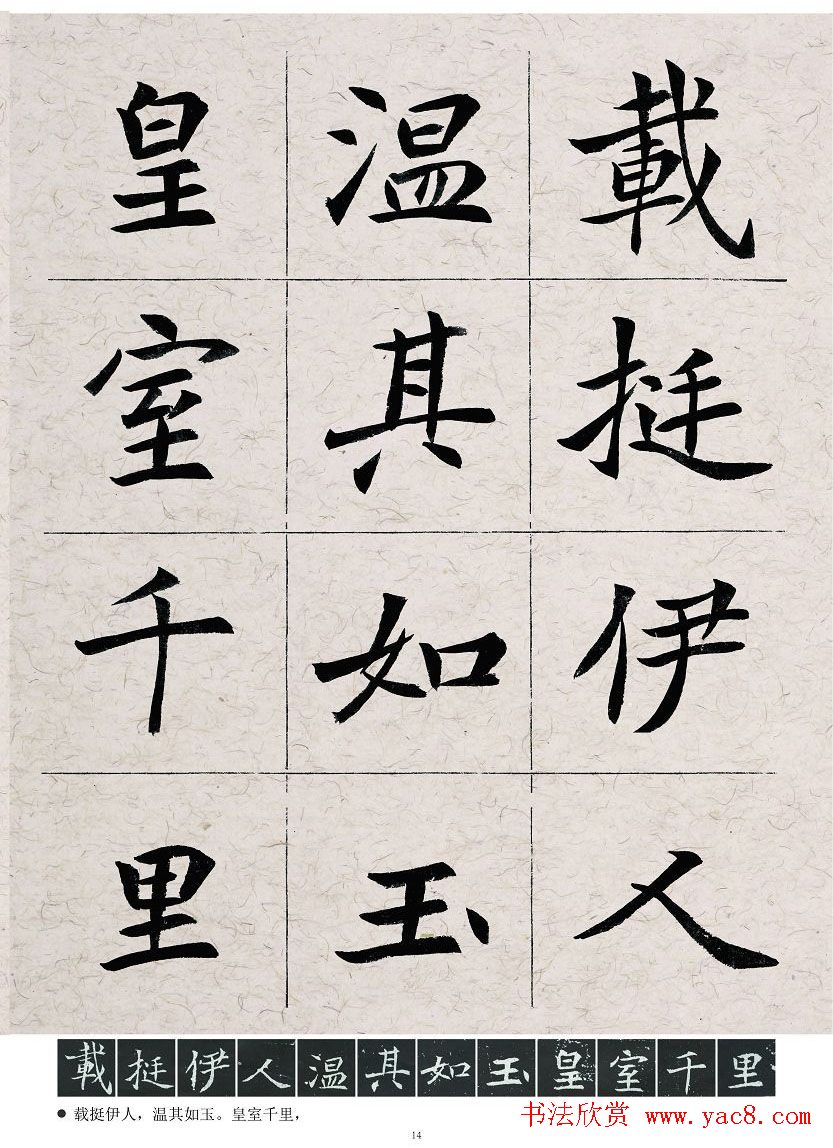 載挺伊人
温其如玉
皇室千里
載挺伊人温其如玉皇室千里
● 载挺伊人，温其如玉。皇室千里，
书法欣赏 www.yac8.com
14